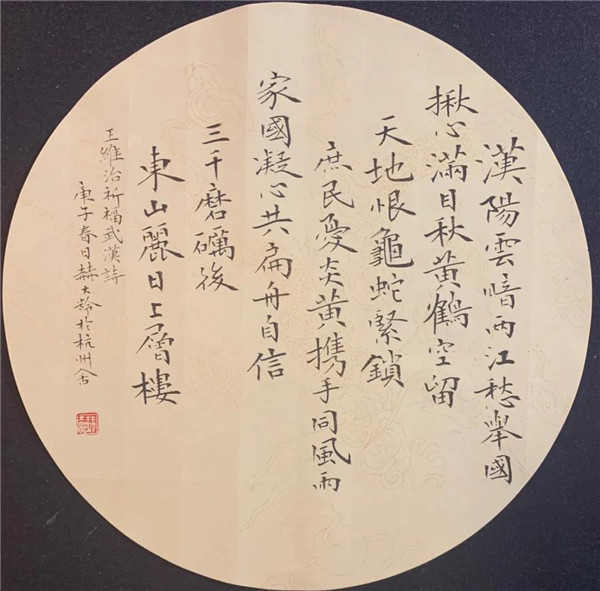 漢陽雲暗两江愁舉國
揪心滿目秋黃鶴空留
天地恨龜蛇緊鎖
庶民憂炎黃携手同風雨
家國凝心共扁舟自信
三千磨礪後
東山麗日上層樓
王維治祈福武漢詩
庚子春日赫大龄於杭州舍